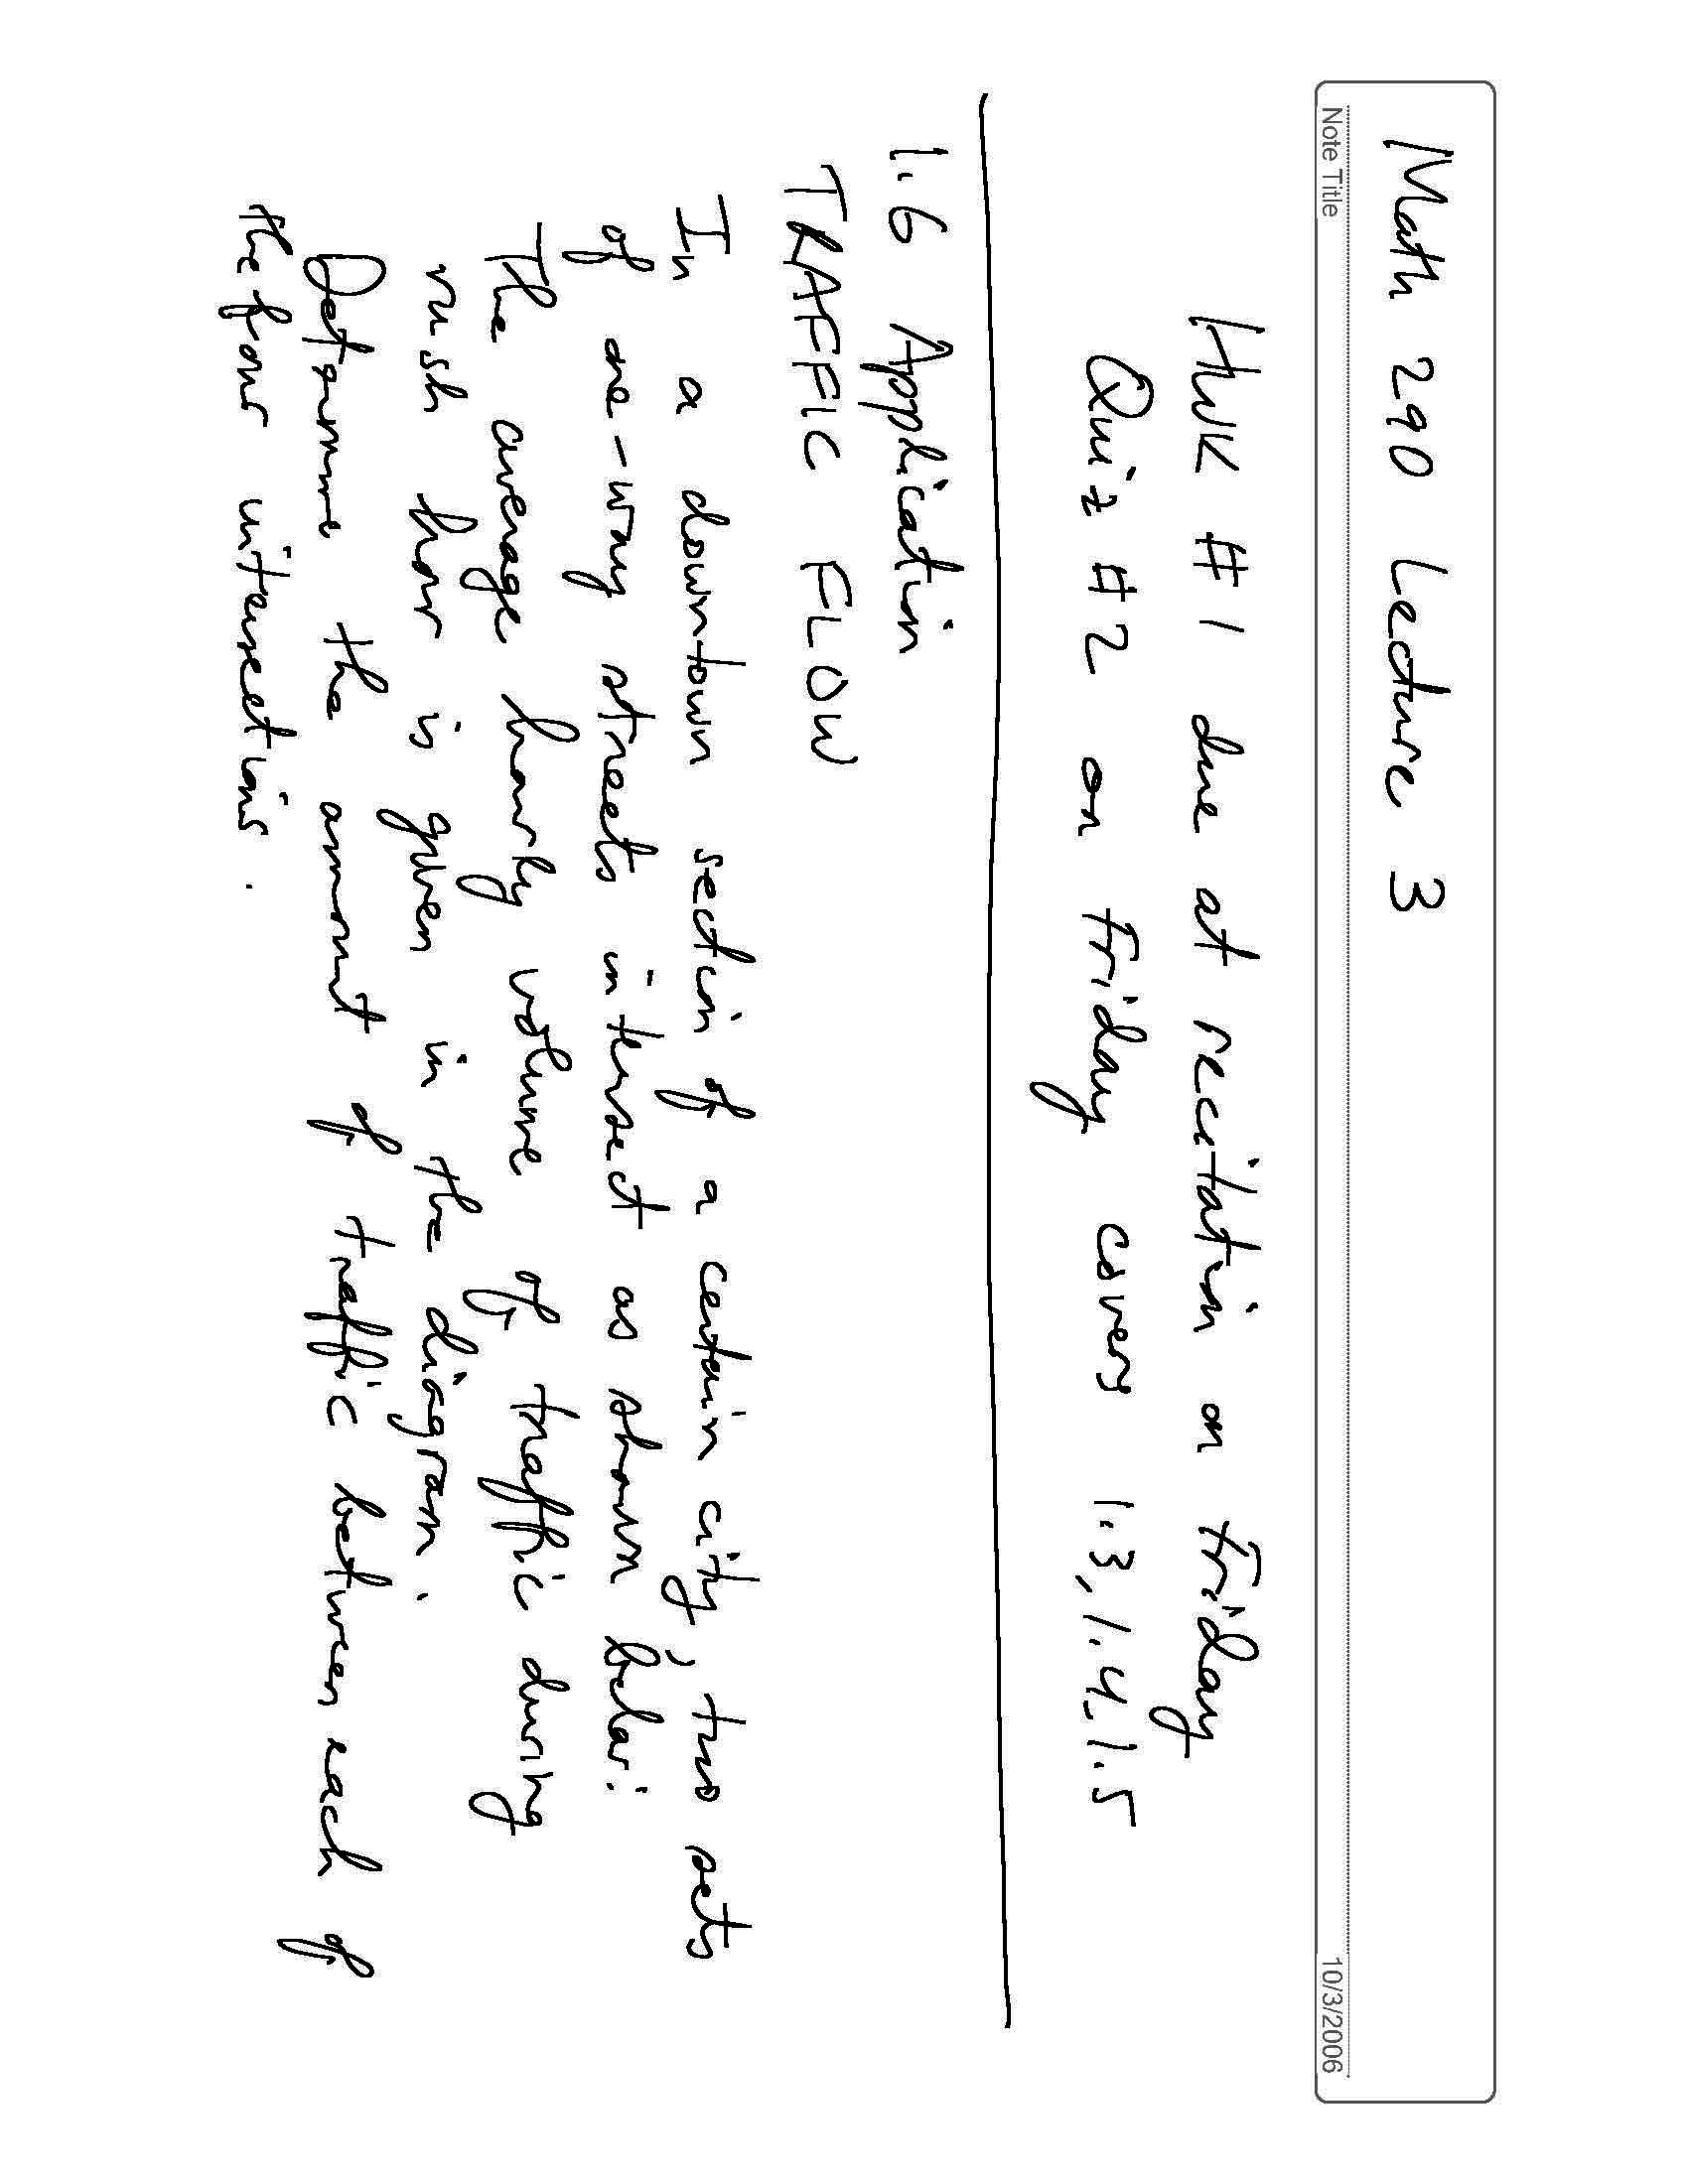 Math 290 Lecture 3
Note Title
10/3/2006
HWK #1 due at recitation on Friday
Quiz #2 on Friday covers 1.3, 1.4, 1.5
1.6 Application
TRAFFIC FLOW
In a downtown section of a certain city, two sets
of one-way streets intersect as shown below.
The average hourly volume of traffic during
rush hour is given in the diagram.
Determine the amount of traffic between each of
the four intersections.